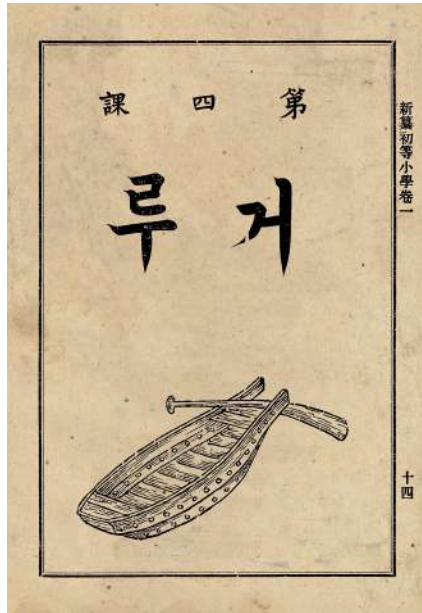 第四課
거루
新纂初等小學卷一
十四